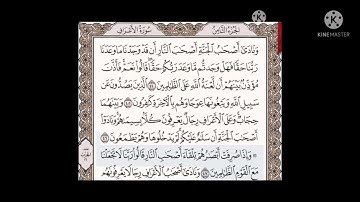 الجزء الثامن
سورة الأعراف
KINEMASTER
وَنَادَىٰ أَصْحَابُ الْجَنَّةِ أَصْحَابَ النَّارِ أَن قَدْ وَجَدْنَا مَا وَعَدَنَا
رَبُّنَا حَقًّا فَهَلْ وَجَدتُّم مَّا وَعَدَ رَبُّكُمْ حَقًّا قَالُوا نَعَمْ فَأَذَّنَ
مُؤَذِّنٌ بَيْنَهُمْ أَن لَّعْنَةُ اللَّهِ عَلَى الظَّالِمِينَ ٤٤ الَّذِينَ يَصُدُّونَ عَن
سَبِيلِ اللَّهِ وَيَبْغُونَهَا عِوَجًا وَهُم بِالْآخِرَةِ كَافِرُونَ ٤٥ وَبَيْنَهُمَا
حِجَابٌ وَعَلَى الْأَعْرَافِ رِجَالٌ يَعْرِفُونَ كُلًّا بِسِيمَاهُمْ وَنَادَوْا
أَصْحَابَ الْجَنَّةِ أَن سَلَامٌ عَلَيْكُمْ لَمْ يَدْخُلُوهَا وَهُمْ يَطْمَعُونَ ٤٦
۞ وَإِذَا صُرِفَتْ أَبْصَارُهُمْ تِلْقَاءَ أَصْحَابِ النَّارِ قَالُوا رَبَّنَا لَا تَجْعَلْنَا
مَعَ الْقَوْمِ الظَّالِمِينَ ٤٧ وَنَادَىٰ أَصْحَابُ الْأَعْرَافِ رِجَالًا يَعْرِفُونَهُم